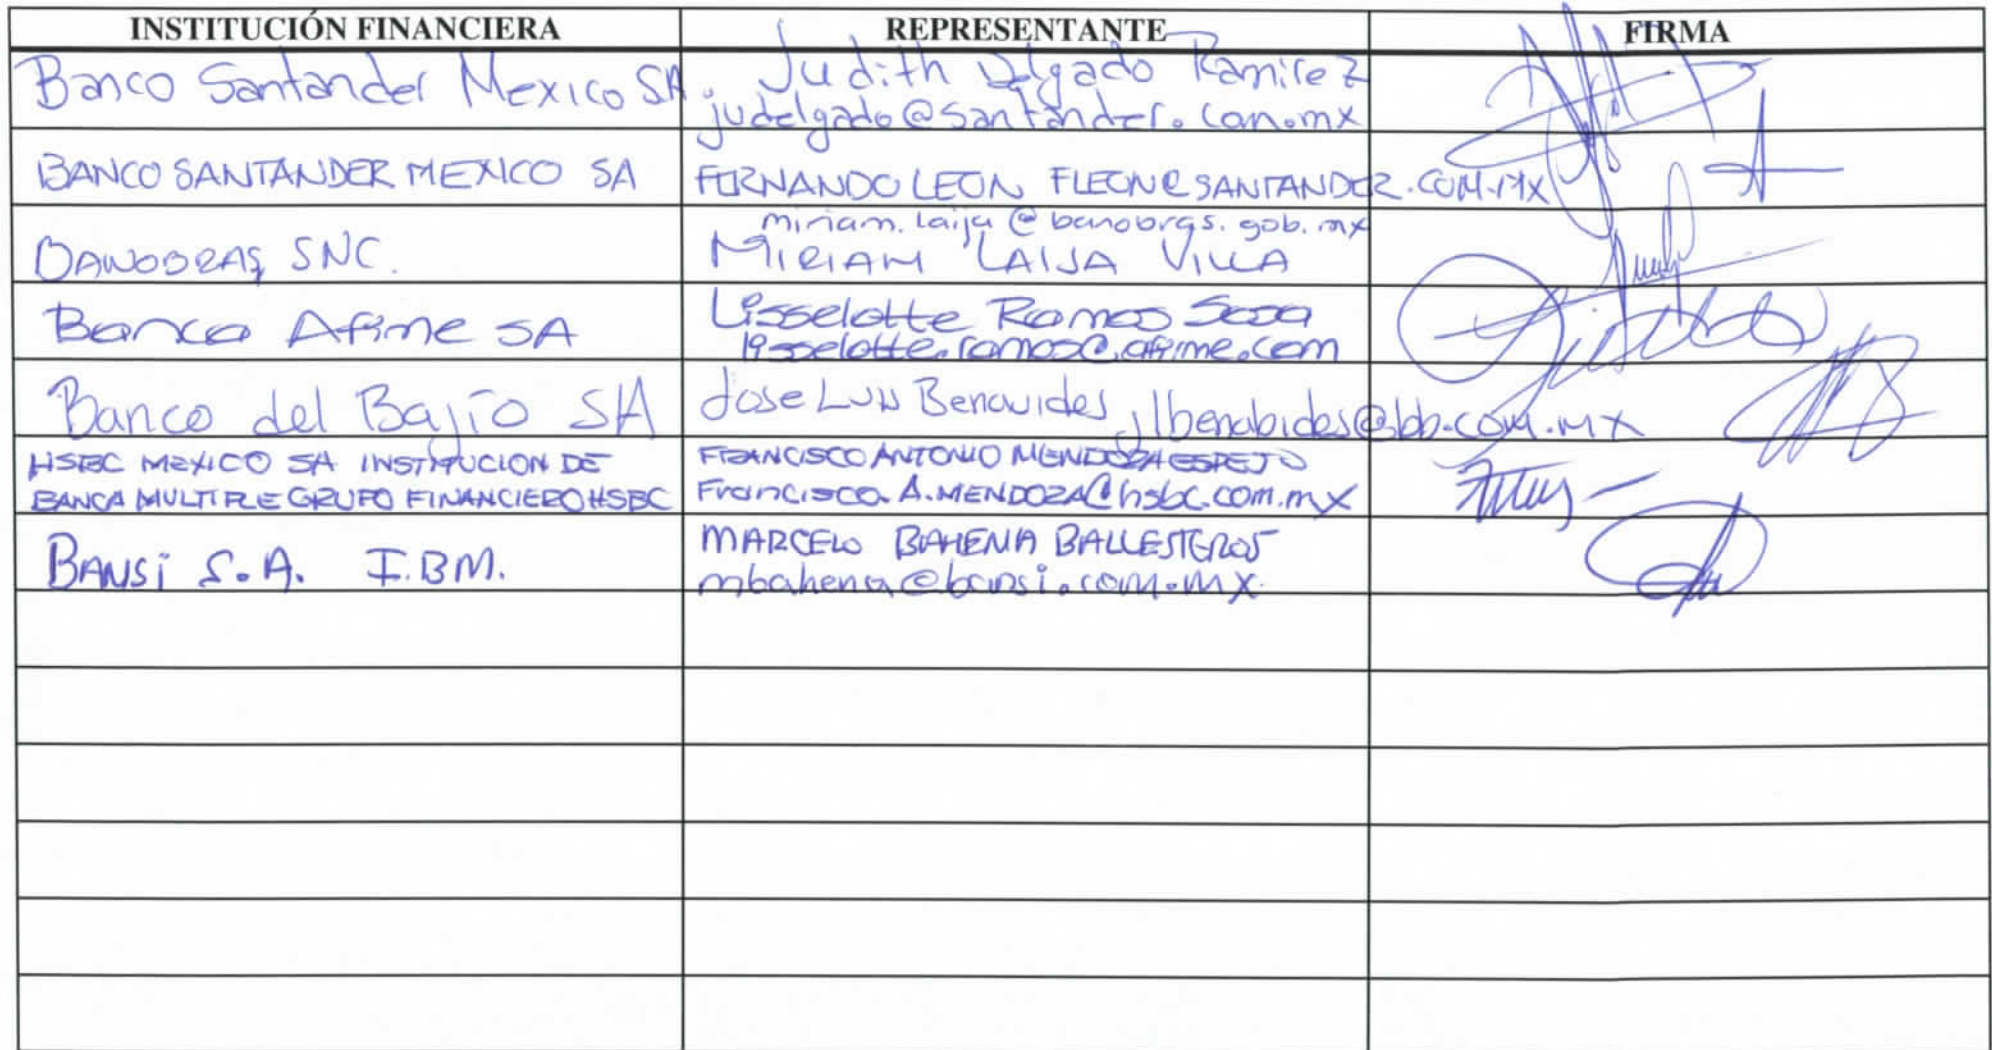 INSTITUCIÓN FINANCIERA REPRESENTANTE FIRMA
Banco Santander Mexico SA. Judith Delgado Ramirez
judelgado@santander.com.mx
BANCO SANTANDER MEXICO SA FERNANDO LEON FLEON@SANTANDER.COM.MX
miriam.laija@banobras.gob.mx
BANOBRAS SNC. MIRIAM LAIJA VILLA
Banca Afirme SA Lisselotte Ramos Sosa
lisselotte.ramos@afirme.com
Banco del Bajío SA Jose Luis Benavides jlbenabides@bb.com.mx
HSBC MEXICO SA INSTITUCION DE FRANCISCO ANTONIO MENDOZA ESPEJO
BANCA MULTIPLE GRUPO FINANCIERO HSBC Francisco.A.MENDOZA@hsbc.com.mx
BANSi S.A. I.B.M. MARCELO BAHENA BALLESTEROS
mbahena@bansi.com.mx